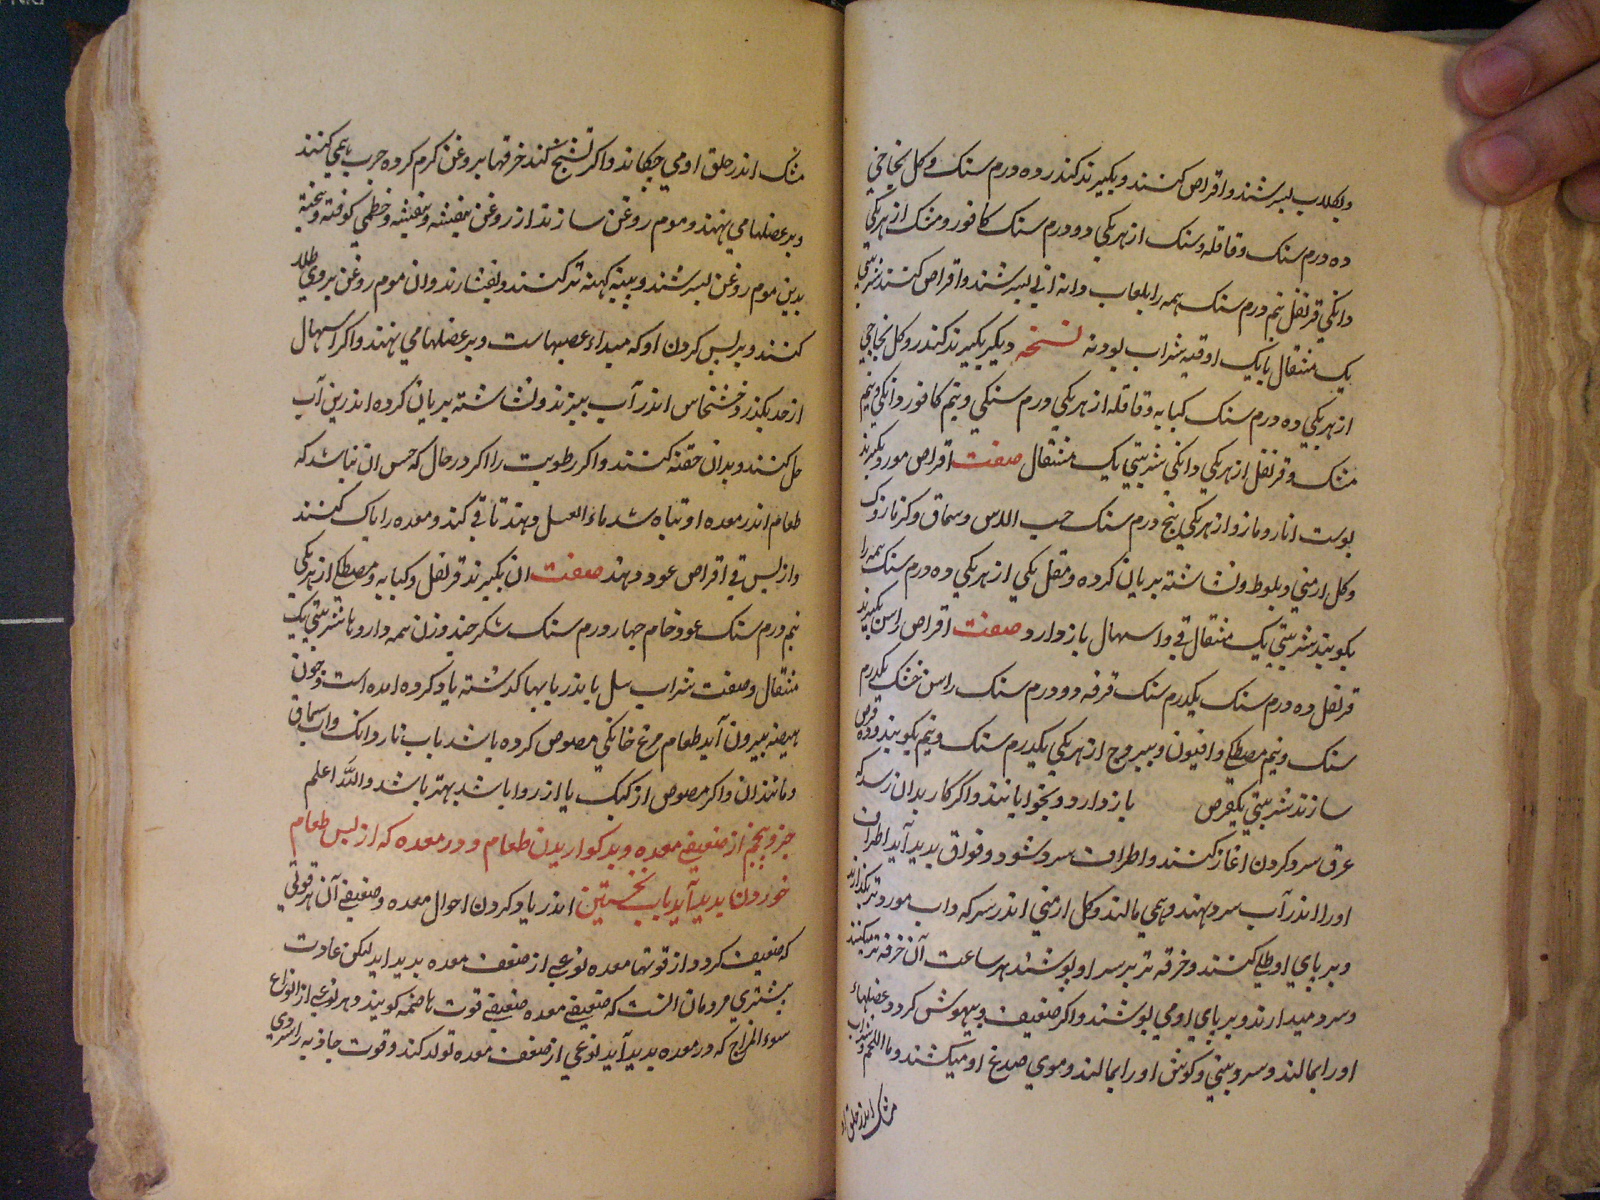 وبکلاب بسرشند واقراص کنند وبکیرند کندر ده درم سنک وکل بخاجی
ده درم سنک وقاقله وسنک ازهریکی دو درم سنک کافور ومشک ازهریکی
دانکی قرنفل نیم درم سنک همه را بلعاب دانه ابی بسرشند واقراص کنند شربتی
یک مثقال با یک اوقیه شراب بودنه نسخه دیکر بکیرند کندر وکل بخاجی
ازهریکی ده درم سنک کبابه وقاقله ازهریکی درم سنکی ونیم کافور دانکی ونیم
مشک وقرنفل ازهریکی دانکی شربتی یک مثقال صفت اقراص مورد بکیرند
بوست انار ومازو ازهریکی پنج درم سنک حب الاس وسماق وکزمازک
وکل ارمنی وبلوط ونشاشته بریان کرده ومقل یکی ازهریکی ده درم سنک همه را
بکوبند شربتی یک مثقال قی واسهال بازدارد صفت اقراص راسن بکیرند
قرنفل ده درم سنک یکدرم سنک قرفه دو درم سنک راسن خشک یکدرم
سنک ونیم مصطکی وافیون وبیروح ازهریکی یکدرم سنک ونیم بکوبند وده قرص
سازند شربتی یکقرص بازدارد وبخواباند واکر کار بدان رسد که
عرق سرد کردن اغاز کنند واطراف سرد شود وفواق بدید آید اطراف
اورا اندر آب سرد نهند وهمی مالند وکل ارمنی اندر سرکه واب مورد تر بکدازند
وبر پای او طلی کنند وخرقه تر بر سر او بوشند هر ساعت آن خرقه تر میکنند
وسرد میدارند وبر پای او می بوشند واکر ضعیف وبیهوش کردد عضلهاء
اورا بمالند وسر وبینی وکوش اورا بمالند وموی صدغ او میکشند وماءاللحم وشراب
مشک اندر حلق او
مشک اندر حلق او می چکانند واکر تشنج کند خرقها بروغن کرم کرده چرب همی کنند
وبر عضلها می نهند وموم روغن سازند از روغن بنفشه وبنفشه وخطمی کوفته وبیخته
بدین موم روغن بسرشند وپنبه کهنه تر کنند وبفشارند وان موم روغن بروی طلا
کنند وبر پس کردن او که مبداء عصبهاست وبر عضلها می نهند واکر اسهال
از حد بکذرد خشخاش اندر آب ببزند ونشاشته بریان کرده اندرین آب
حل کنند وبدان حقنه کنند واکر رطوبت را اکر در حال که حس ان نباشد که
طعام اندر معده او تباه شد ماء العسل دهند تا قی کند ومعده را پاک کنند
واز پس قی اقراص عود دهند صفت ان بکیرند قرنفل وکبابه ومصطکی ازهریکی
نیم درم سنک عود خام چهار درم سنک شکر چند وزن همه داروها شربتی یک
مثقال وصفت شراب سل با بذر بابها کذشته یاد کرده امده است وچون
بهیضه بیرون آید طعام مرغ خانکی مصوص کرده باشد باب ناردانک واب سماق
ومانند ان واکر مصوص از کبک یا از دراج باشد بهتر باشد والله اعلم
جزو پنجم از ضعیفی معده وبد کواریدن طعام ودرد معده که از پس طعام
خوردن بدید آید باب نخستین اندر یاد کردن احوال معده وضعیفی آن هر قوتی
که ضعیف کردد از قوتها معده نوعی از ضعف معده بدید اید لیکن عادت
بیشتری مردمان انست که ضعیفی معده ضعیفی قوت هاضمه کویند وهر نوعی از انواع
سوء المزاج که در معده بدید آید نوعی از ضعف معده تولد کند وقوت جاذبه را سردی